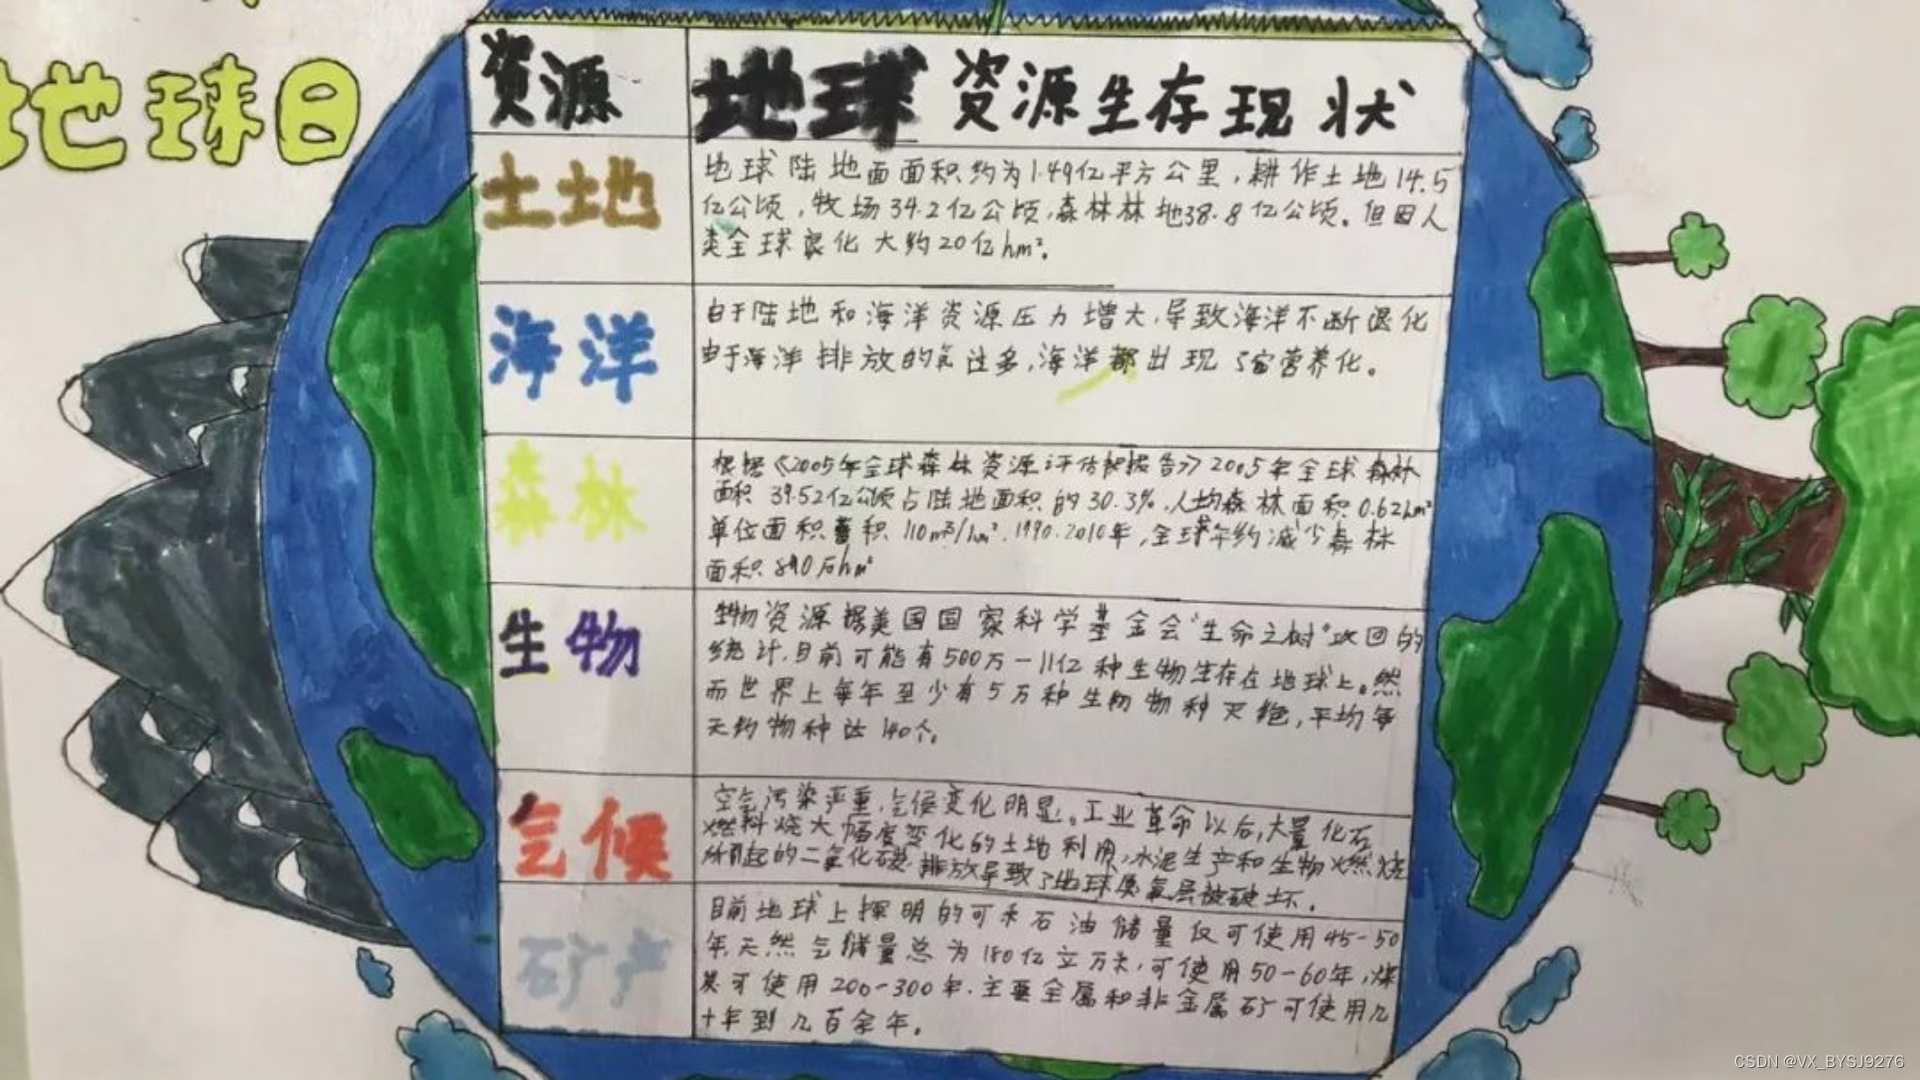 地球日
资源
地球资源生存现状
土地
地球陆地面面积约为1.49亿平方公里，耕作土地14.5
亿公顷，牧场34.2亿公顷，森林林地38.8亿公顷。但因人
类全球退化大约20亿hm²。
海洋
由于陆地和海洋资源压力增大，导致海洋不断退化
由于海洋排放的氮过多，海洋都出现了富营养化。
森林
根据《2005年全球森林资源评估报告》2005年全球森林
面积39.52亿公顷占陆地面积的30.3%，人均森林面积0.62hm²
单位面积蓄积110m³/hm²，1990-2010年，全球年约减少森林
面积890万hm²
生物
生物资源据美国国家科学基金会“生命之树”项目的
统计，目前可能有500万-11亿种生物生存在地球上。然
而世界上每年至少有5万种生物物种灭绝，平均每
天约物种达140个。
气候
空气污染严重，气候变化明显。工业革命以后，大量化石
燃料烧大幅度变化的土地利用，水泥生产和生物燃烧
所引起的二氧化碳排放导致了地球臭氧层被破坏。
矿产
目前地球上探明的可采石油储量仅可使用45-50
年，天然气储量总为180亿立方米，可使用50-60年，煤
炭可使用200-300年，主要金属和非金属矿可使用几
十年到几百余年。
CSDN @VX_BYSJ9276